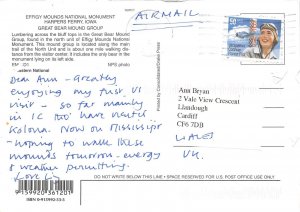 EFFIGY MOUNDS NATIONAL MONUMENT
HARPERS FERRY, IOWA
GREAT BEAR MOUND GROUP
Lumbering across the bluff tops is the Great Bear Mound
Group, found in the north unit of Effigy Mounds National
Monument. This mound group is located along the main
trail of the North Unit and is about one mile walking
distance from the visitor center.
NPS photo
AIRMAIL
Dear Ann - Greatly
enjoying my first US
visit - so far mainly
in IC
Kalona. Now on Mississippi
- hoping to walk these
mounds tomorrow - energy
& weather permitting.
Love
Ann Bryan
2 Vale View Crescent
Llandough
Cardiff
CF6 7DB
WALES
UK.
9 15992 036120 1
ISBN 0-915992-33-5
DO NOT WRITE BELOW THIS LINE - SPACE RESERVED FOR U.S. POST OFFICE USE ONLY